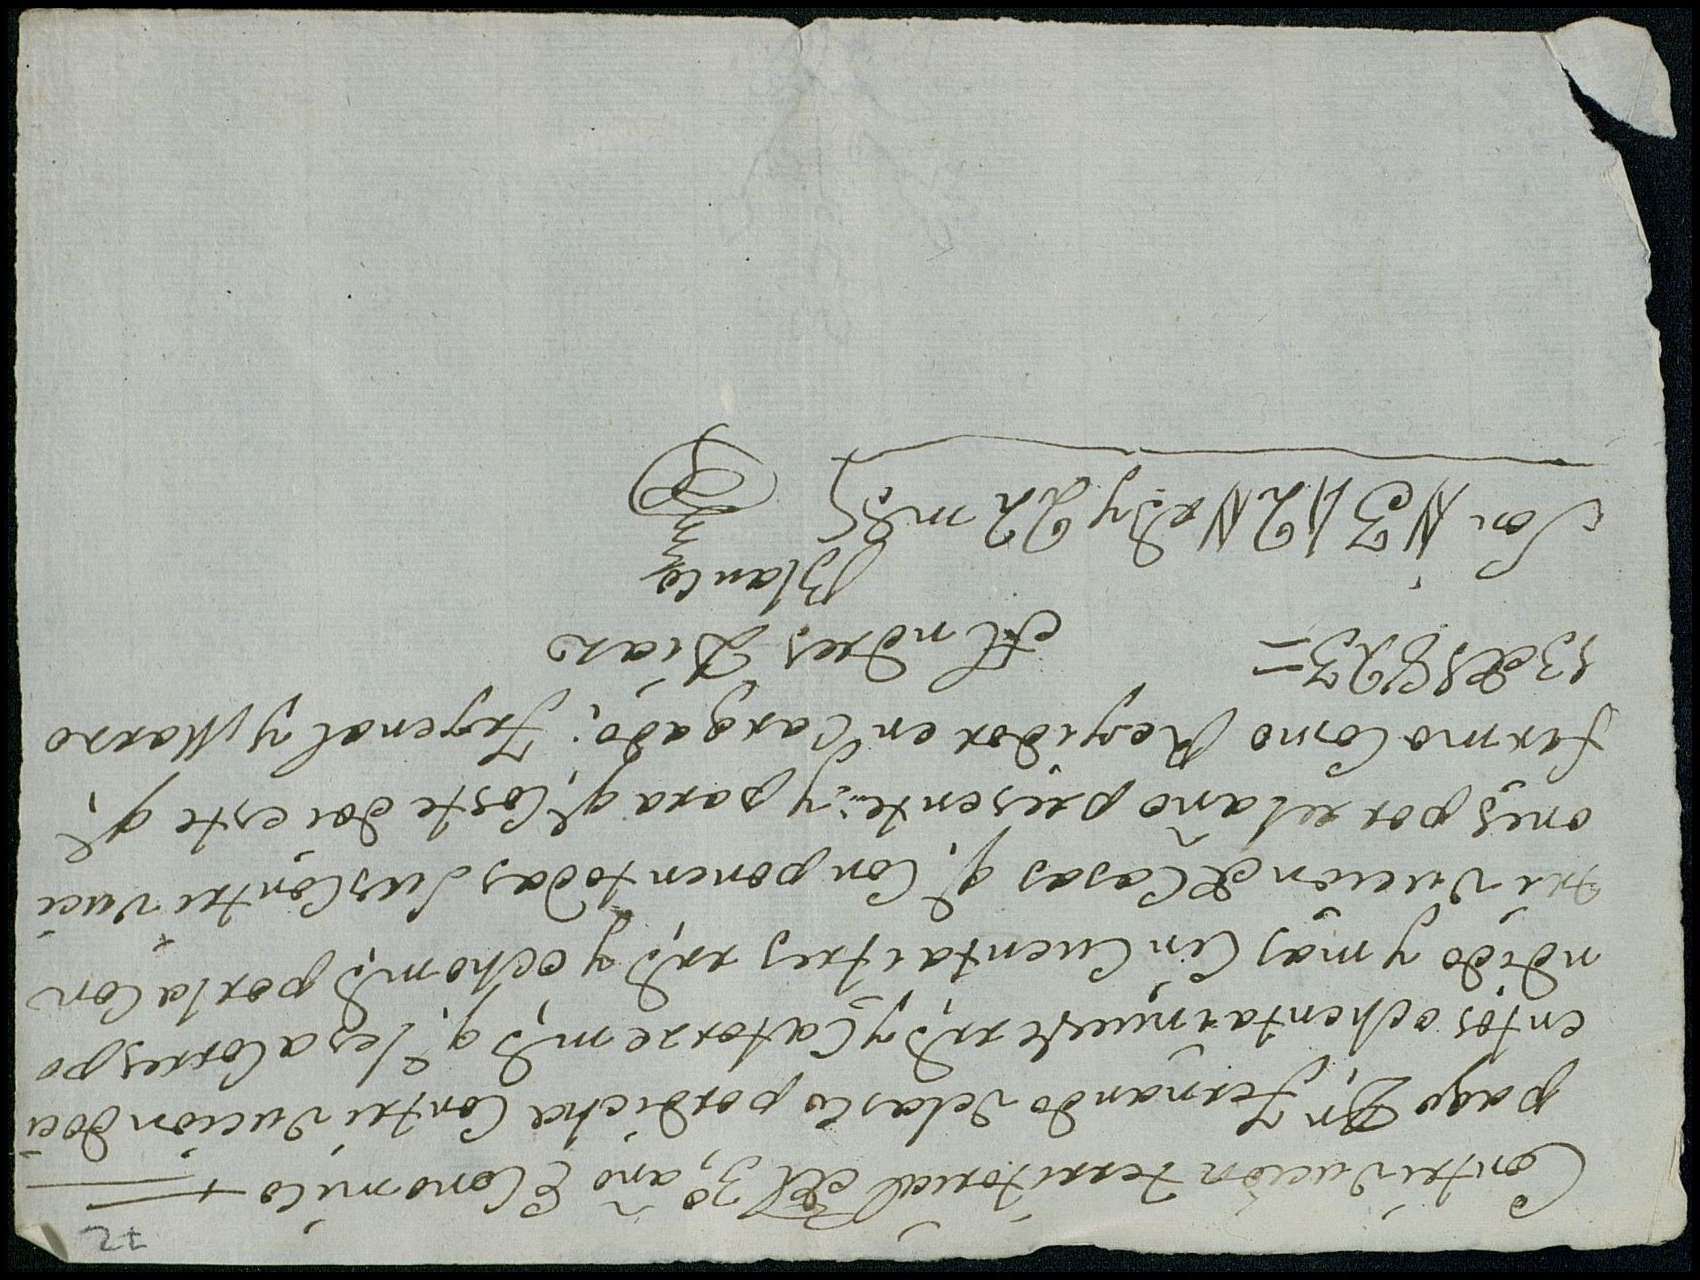 Contrivucion territorial del 3º, año Economico
pago Dn, Fernando velasco por dicha Contrivucion doci
entos ochentainuebe rrs, y Catorze ms, qe, les a Correspo
ndido y mas Cin Cuentaitres rrs, y ocho ms, por la Con
trivucion de Casas qe, Con ponen todas sus Contrivuci
ones por el año presente: y para qe, Coste doi este qe,
firmo Como Regidor en Cargado; Frgenal y Marzo
13 de 1823=
Andres Diaz
Blanco
Son 342 rrs y 22 ms